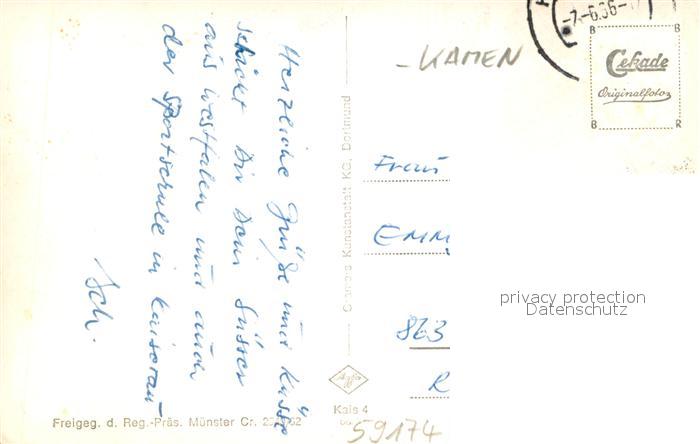 Herzliche Grüße und Küsse
schickt Dir Dein Süsser
aus Westfalen und auch
der Sportschule in Kaiserau
Sch.
- KAMEN
-7.-6.66-
B B
Cekade
Originalfoto
B R
Frau
EMM
863
R
privacy protection
Datenschutz
Cramers Kunstanstalt KG, Dortmund
Agfa
Freigeg. d. Reg.-Präs. Münster Cr.
Kais 4
59174